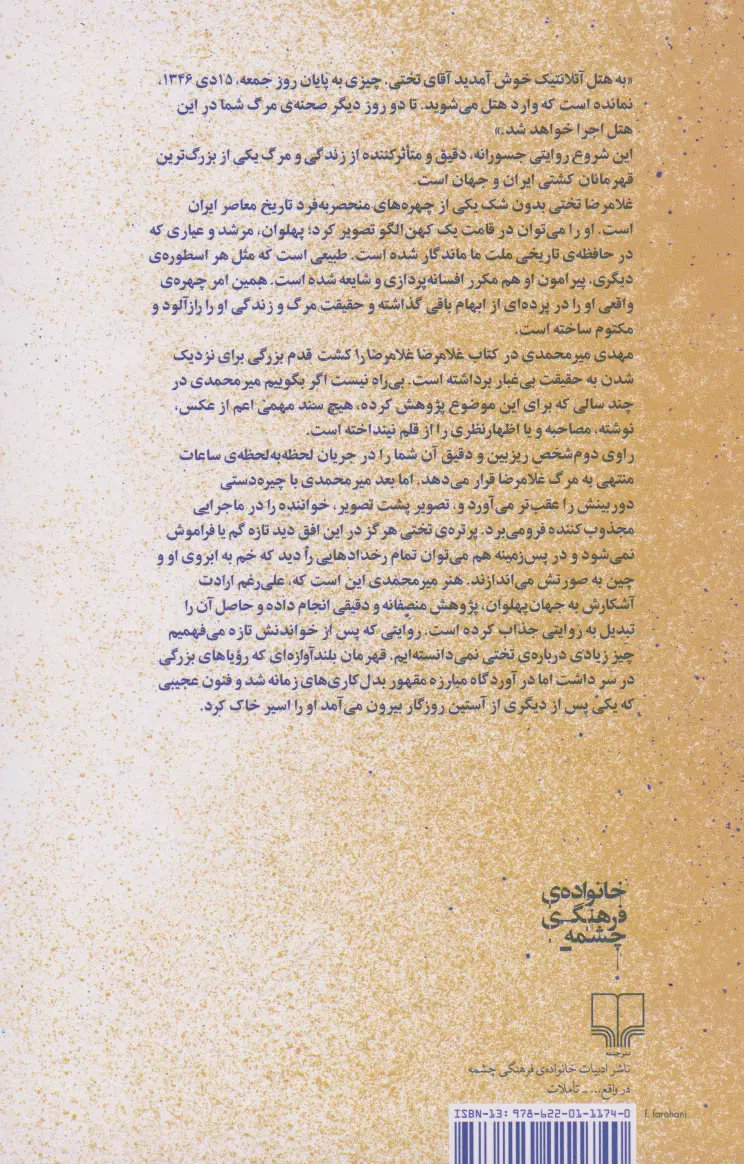 «به هتل آتلانتیک خوش آمدید آقای تختی. چیزی به پایان روز جمعه، ۱۵دی ۱۳۴۶،
نمانده است که وارد هتل می‌شوید. تا دو روز دیگر صحنه‌ی مرگ شما در این
هتل اجرا خواهد شد.»
این شروع روایتی جسورانه، دقیق و متأثرکننده از زندگی و مرگ یکی از بزرگ‌ترین
قهرمانان کشتی ایران و جهان است.
غلامرضا تختی بدون شک یکی از چهره‌های منحصربه‌فرد تاریخ معاصر ایران
است. او را می‌توان در قامت یک کهن‌الگو تصویر کرد؛ پهلوان، مرشد و عیاری که
در حافظه‌ی تاریخی ملت ما ماندگار شده است. طبیعی است که مثل هر اسطوره‌ی
دیگری، پیرامون او هم مکرر افسانه‌پردازی و شایعه شده است. همین امر چهره‌ی
واقعی او را در پرده‌ای از ابهام باقی گذاشته و حقیقت مرگ و زندگی او را رازآلود و
مکتوم ساخته است.
مهدی میرمحمدی در کتاب غلامرضا غلامرضا را کشت قدم بزرگی برای نزدیک
شدن به حقیقت بی‌غبار برداشته است. بی‌راه نیست اگر بگوییم میرمحمدی در
چند سالی که برای این موضوع پژوهش کرده، هیچ سند مهمی اعم از عکس،
نوشته، مصاحبه و یا اظهارنظری را از قلم نینداخته است.
راوی دوم‌شخص ریزبین و دقیق آن شما را در جریان لحظه‌به‌لحظه‌ی ساعات
منتهی به مرگ غلامرضا قرار می‌دهد، اما بعد میرمحمدی با چیره‌دستی
دوربینش را عقب‌تر می‌آورد و، تصویر پشت تصویر، خواننده را در ماجرایی
مجذوب‌کننده فرومی‌برد. پرتره‌ی تختی هرگز در این افق دید تازه گم یا فراموش
نمی‌شود و در پس‌زمینه هم می‌توان تمام رخدادهایی را دید که خم به ابروی او و
چین به صورتش می‌اندازند. هنر میرمحمدی این است که، علی‌رغم ارادت
آشکارش به جهان‌پهلوان، پژوهش منصفانه و دقیقی انجام داده و حاصل آن را
تبدیل به روایتی جذاب کرده است. روایتی که پس از خواندنش تازه می‌فهمیم
چیز زیادی درباره‌ی تختی نمی‌دانسته‌ایم. قهرمان بلندآوازه‌ای که رؤیاهای بزرگی
در سر داشت اما در آوردگاه مبارزه مقهور بدل‌کاری‌های زمانه شد و فنون عجیبی
که یکی پس از دیگری از آستین روزگار بیرون می‌آمد او را اسیر خاک کرد.
خانواده‌ی
فرهنگی
چشمه
نشرچشمه
ناشر ادبیات خانواده‌ی فرهنگی چشمه
در واقع... _ تأملات
ISBN-13: 978-622-01-1174-0
f. farahani